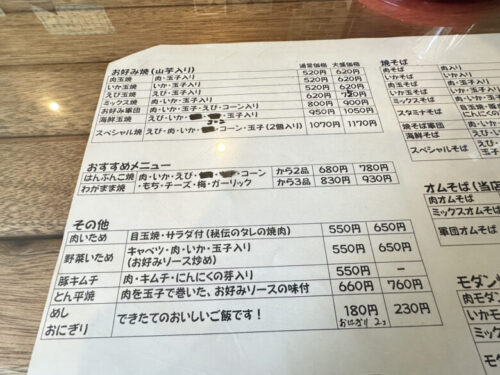 お好み焼(山芋入り) 通常価格 大盛価格
肉玉焼 肉・玉子入り 520円 620円
いか玉焼 いか・玉子入り 520円 620円
えび玉焼 えび・玉子入り 620円 720円
ミックス焼 肉・いか・玉子入り 800円 900円
お好み軍団 肉・いか・玉子・えび・コーン入り 950円 1050円
海鮮玉焼
スペシャル焼 えび・肉・いか・コーン・玉子(2個入り) 1070円 1170円
おすすめメニュー
はんぶんこ焼 肉・いか・えび・コーン から2品 680円 780円
わがまま焼 ・もち・チーズ・梅・ガーリック から3品 830円 930円
その他
肉いため 目玉焼・サラダ付(秘伝のタレの焼肉) 550円 650円
野菜いため キャベツ・肉・いか・玉子入り 550円 650円
(お好みソース炒め)
豚キムチ 肉・キムチ・にんにくの芽入り 550円 –
とん平焼 肉を玉子で巻いた、お好みソースの味付 660円 760円
めし できたてのおいしいご飯です! 180円 230円
おにぎり おにぎり 2コ
焼そば
肉焼そば 肉入り
いか玉そば
えび玉そば
ミックスそば
スタミナそば
焼そば軍団
海鮮そば
スペシャル
オムそば(当店
肉オムそば
ミックスオムそば
軍団オムそば
モダン
肉モダ
いかモ
えびモ
ミックス